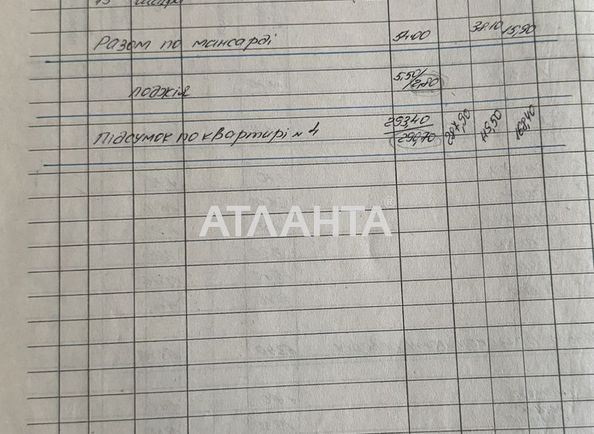 Разом по мансарді 54.00 38.10 15.90
лоджія 5.50/
Підсумок по квартирі № 4 293,40 287,90 119,50 168,40
290,70
АТЛАНТА